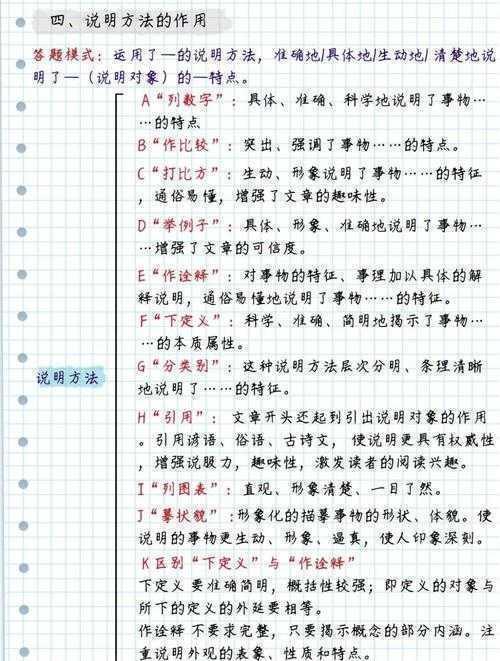 四、说明方法的作用
答题模式：运用了—的说明方法，准确地/具体地/生动地/清楚地说
明了—（说明对象）的—特点。
A“列数字”：具体、准确、科学地说明了事物…
…的特点
B“作比较”：突出、强调了事物……的特点。
C“打比方”：生动、形象说明了事物……的特征
，通俗易懂，增强了文章的趣味性。
D“举例子”：具体、形象、准确地说明了事物…
…增强了文章的可信度。
E“作诠释”：对事物的特征、事理加以具体的解
释说明，通俗易懂地说明了事物……的特征。
F“下定义”：科学、准确、简明地揭示了事物…
…的本质属性。
说明方法
G“分类别”：这种说明方法层次分明、条理清晰
地说明了……的特征。
H“引用”：文章开头还起到引出说明对象的作用
。引用谚语、俗语、古诗文，使说明更具有权威性
，增强说服力，趣味性，激发读者的阅读兴趣。
I“列图表”：直观、形象清楚、一日了然。
J“摹状貌”:形象化的描摹事物的形状、体貌。使
说明的事物更生动、形象、逼真，使人印象深刻。
K区别“下定义”与“作诠释”
下定义 要准确简明，概括性较强；即定义的对象与
所下的定义的外延要相等。
作诠释 不要求完整，只要揭示概念的部分内涵。注
重说明外观的表象、性质和特点。